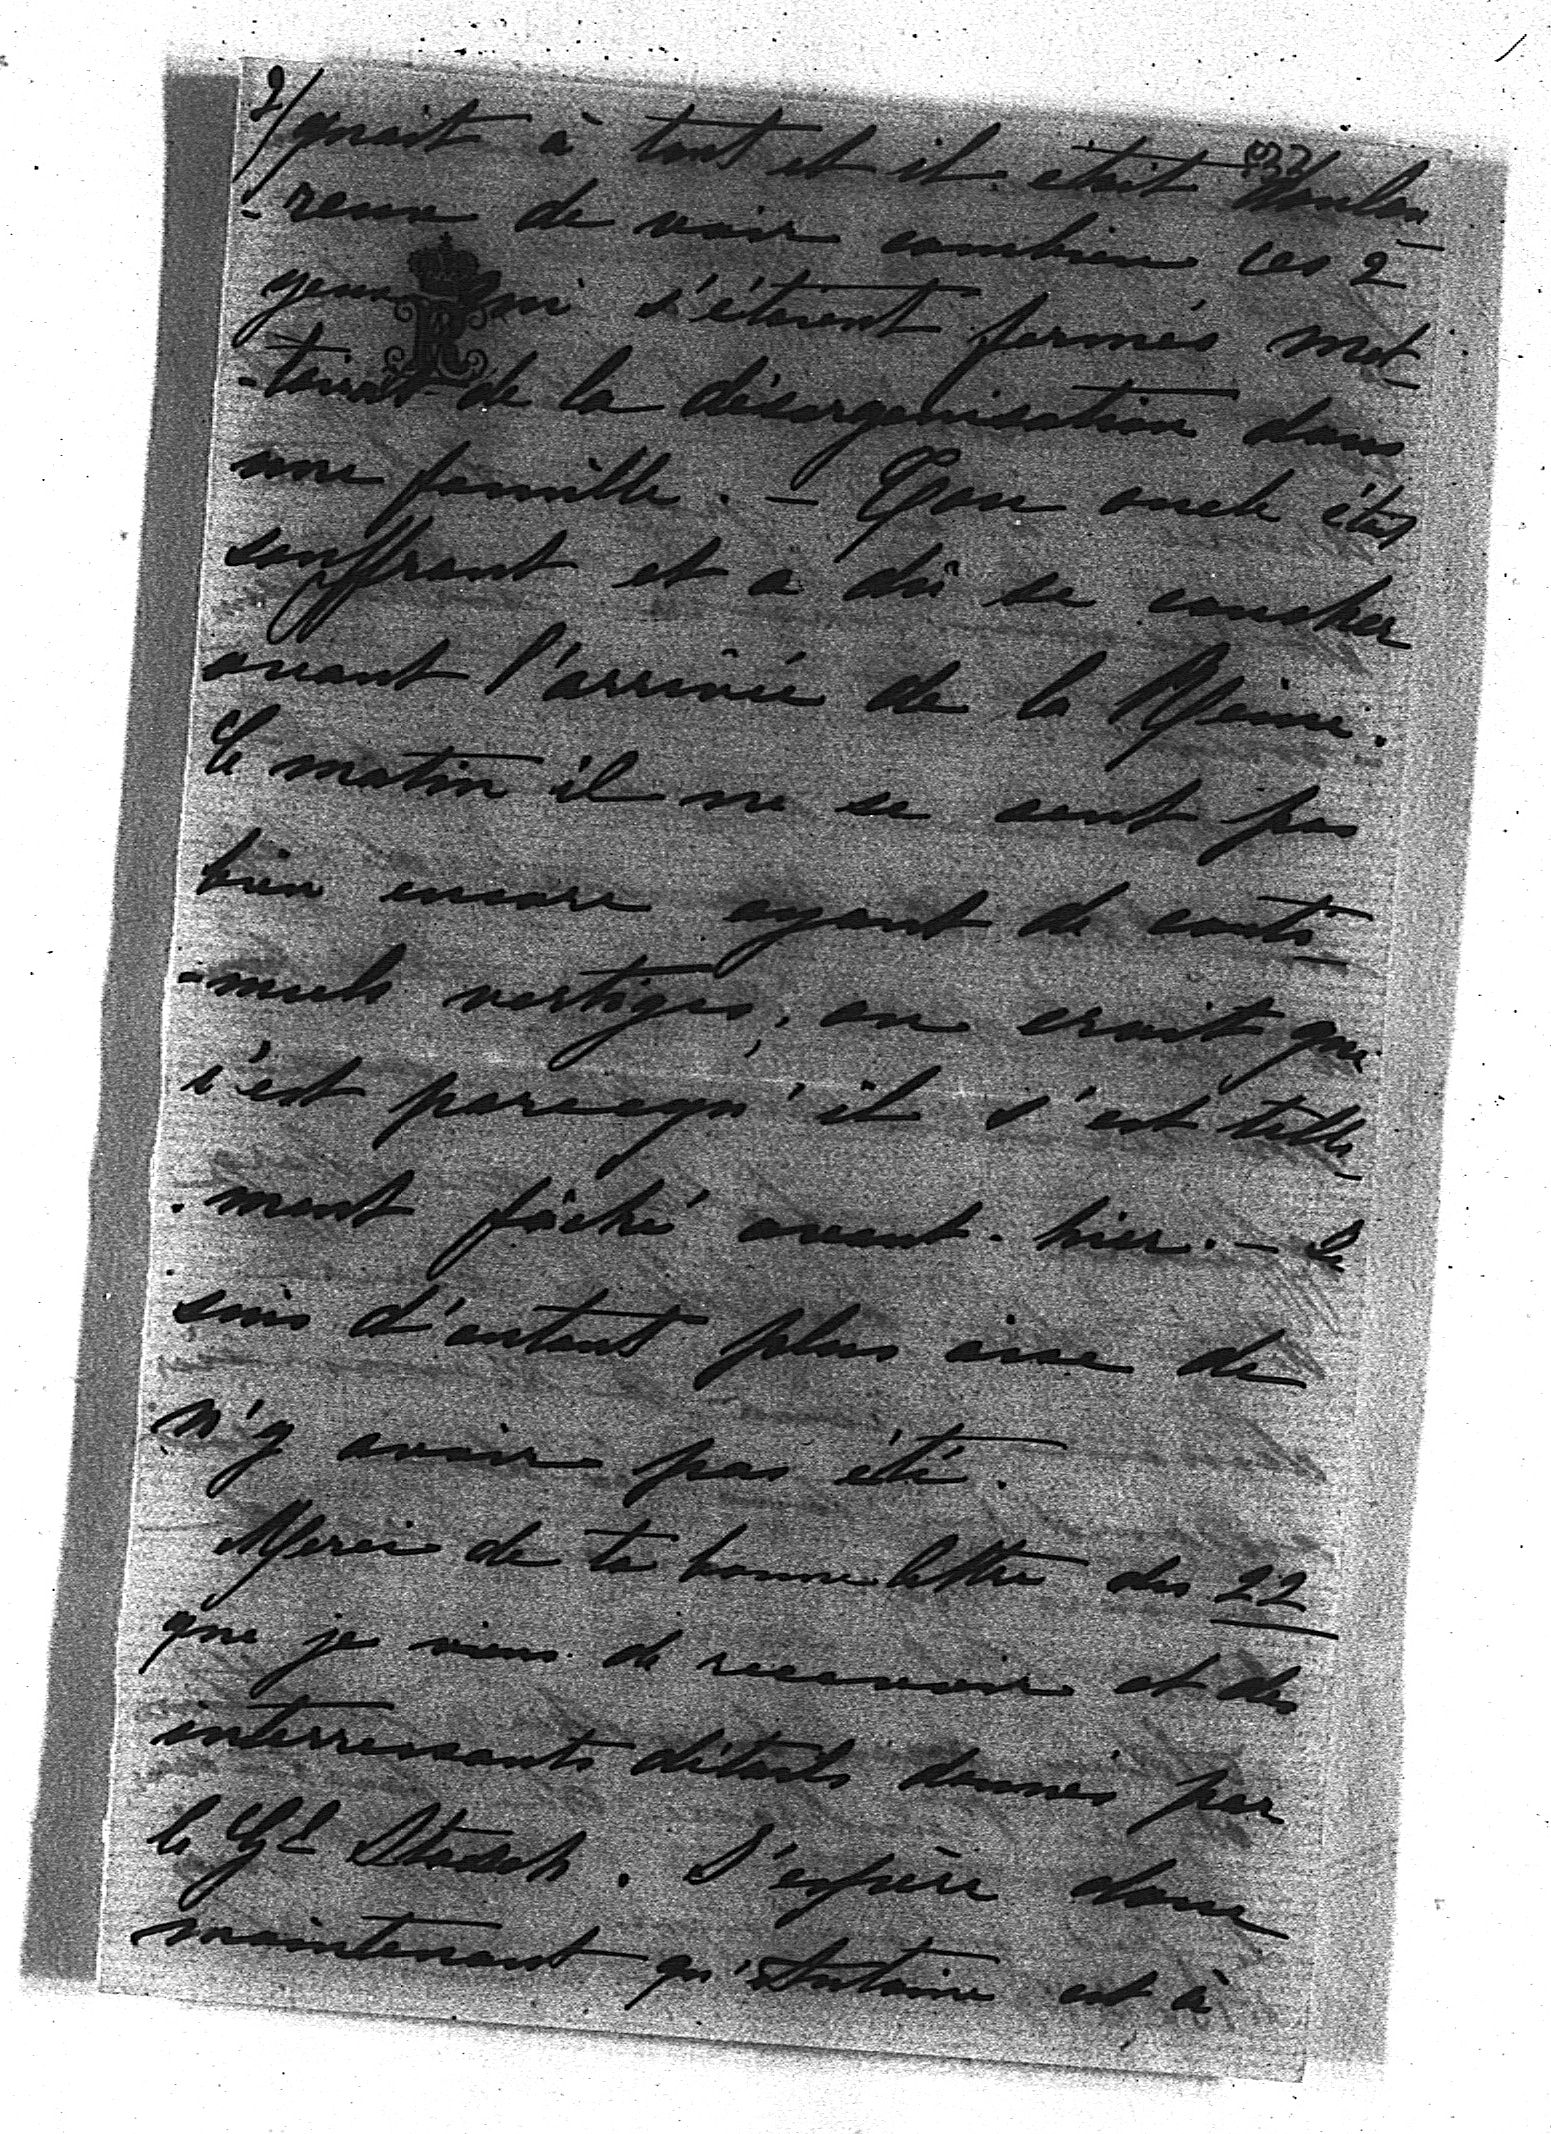 2/
quait à tout et il était doulou
-reux de voir combien ces 2
yeux qui s'étaient fermés met
-taient de la désorganisation dans
une famille. — Ton oncle était
souffrant et a dû se coucher
avant l'arrivée de la Reine.
Ce matin il ne se sent pas
bien encore ayant de conti
-nuels vertiges, on croit que
c'est parcequ'il s'est telle
-ment fâché avant-hier. — Je
suis d'autant plus aise de
n'y avoir pas été.
Merci de ta bonne lettre du 22
que je viens de recevoir et des
interressants détails donnés par
le Gl. J'espère donc
maintenant qu'Antoine est à